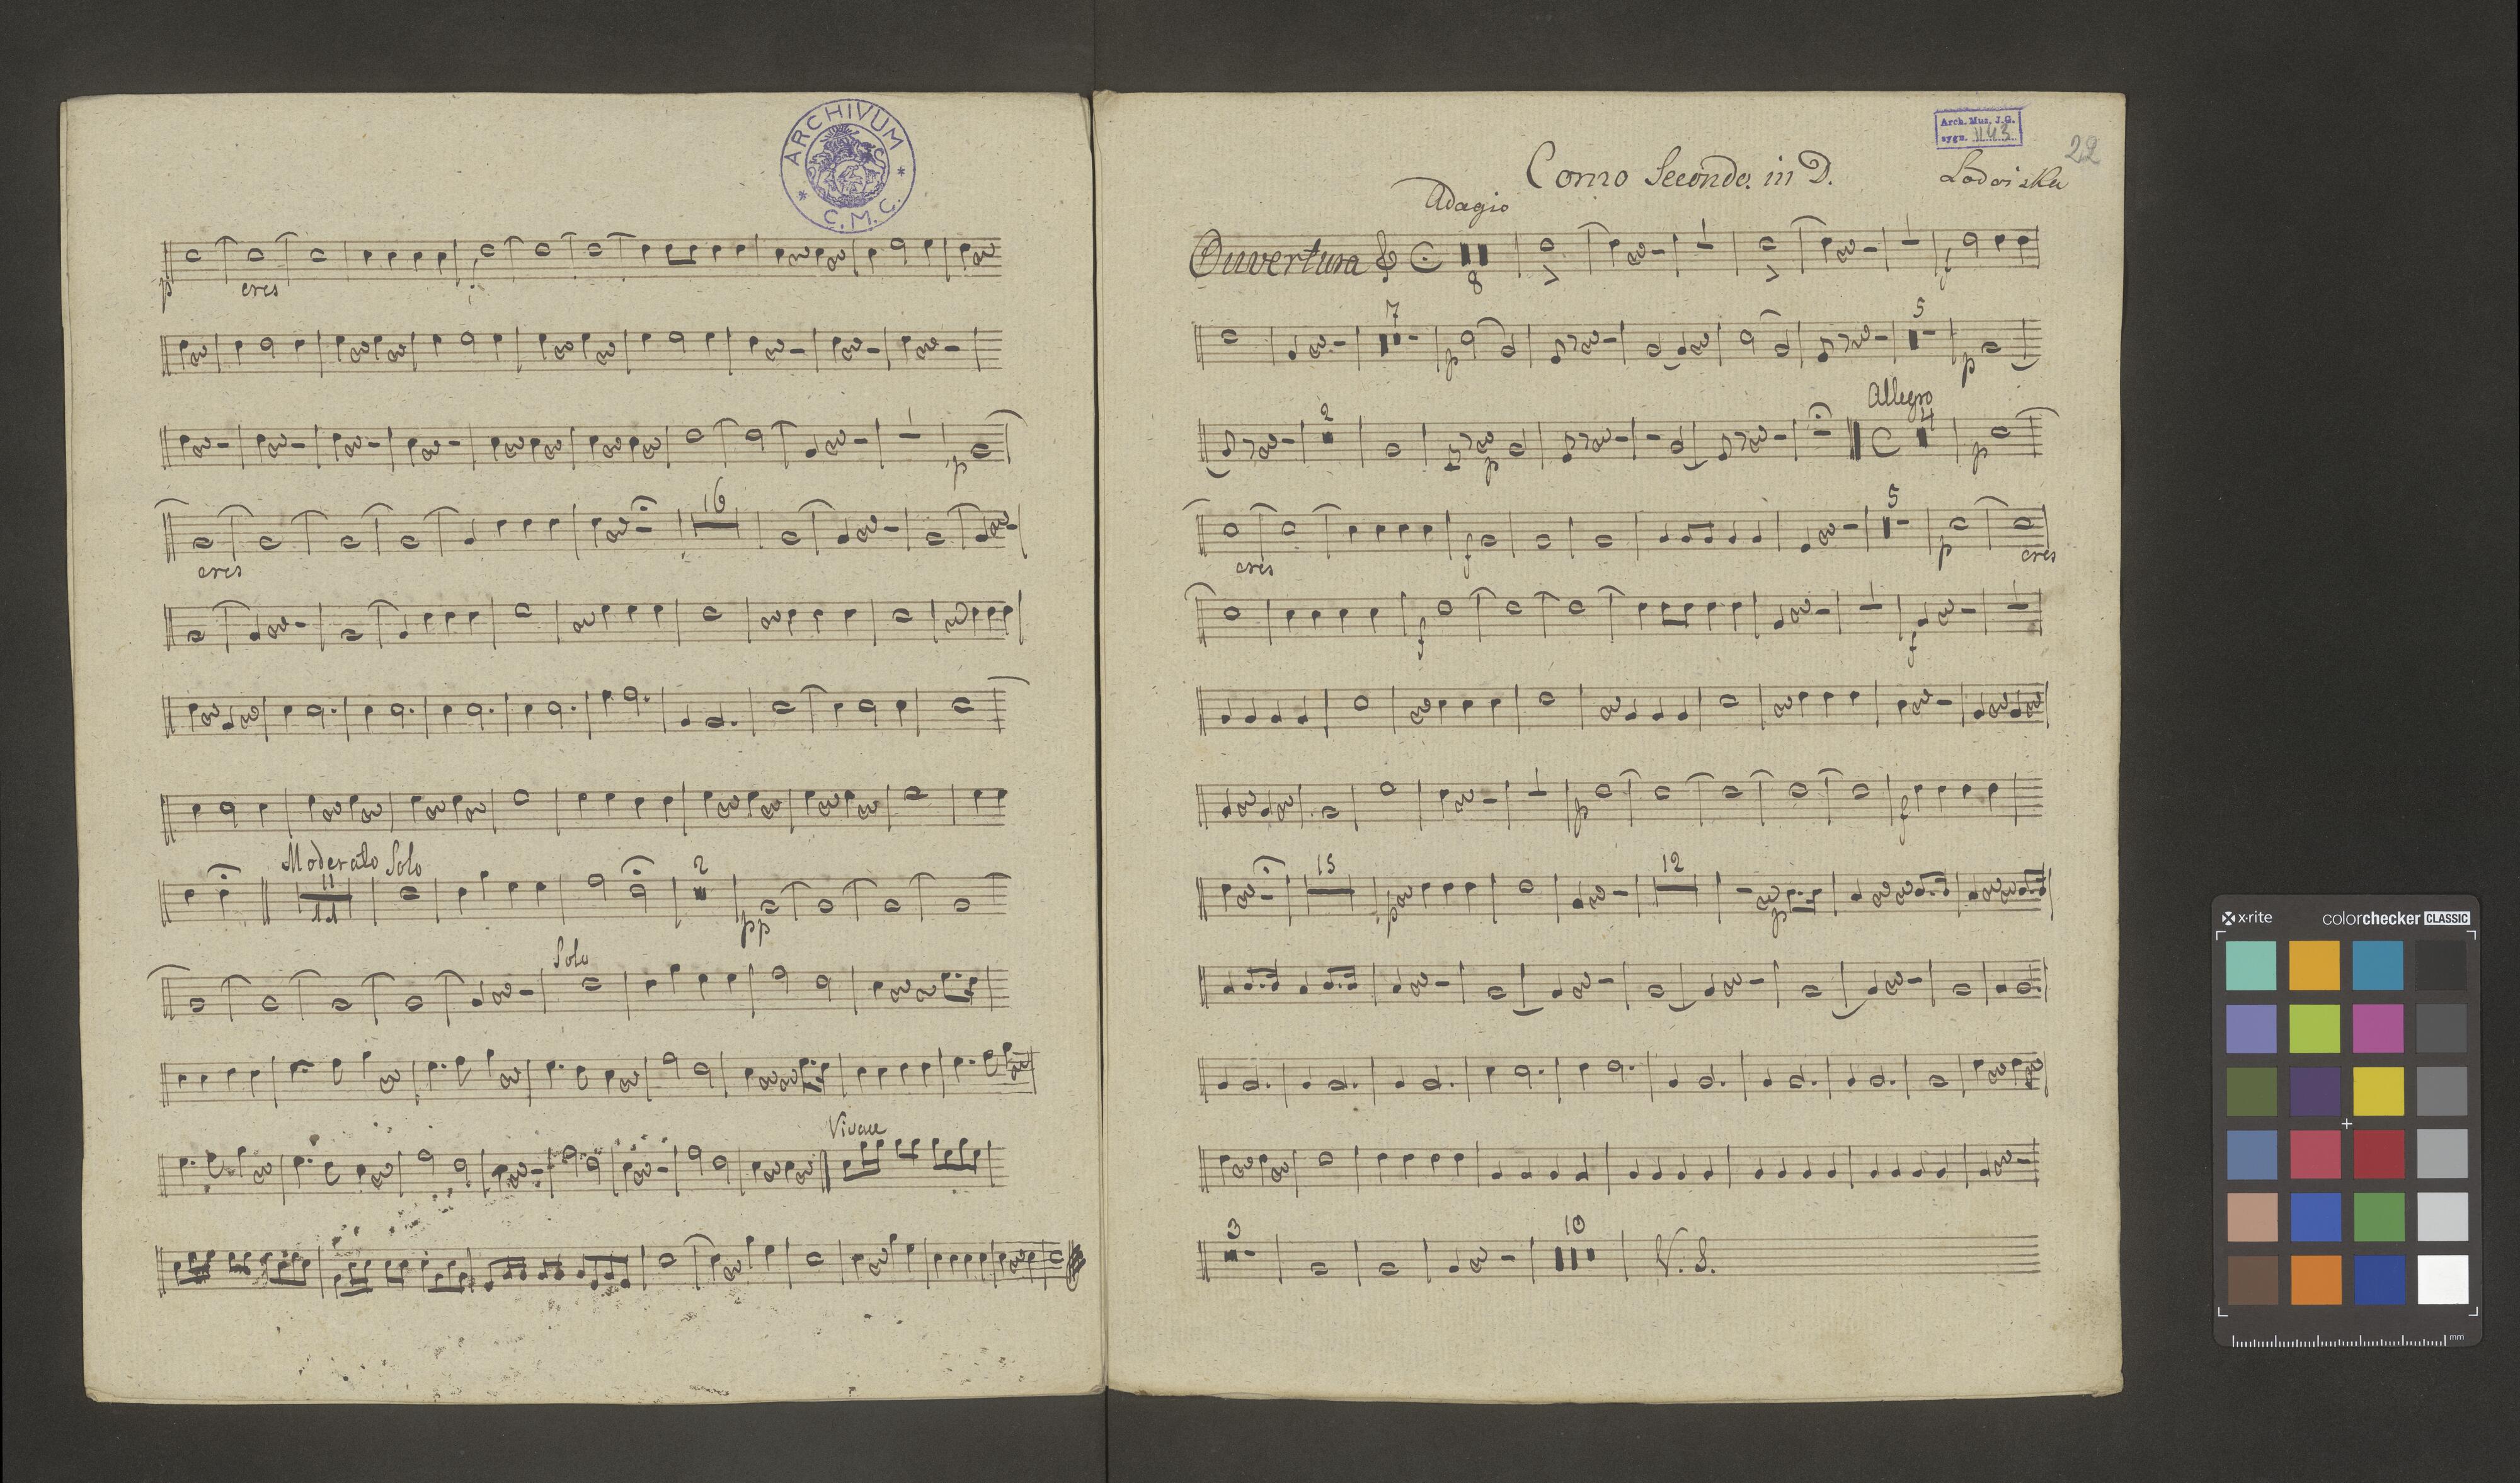 ARCHIVUM
* C.M.C. *
p cres
p
cres
16
Moderato Solo
11
11
2
pp
Solo
Vivace
Arch. Muz. J.G.
sygn. 1143
22
Corno Secondo. in D.
Lodoiska
Adagio
Ouvertura
8
f
7
5
p
p
2
Allegro
4
p
p
5
cres
f
p
cres
f
f
p
f
15
12
p
p
3
10
V. S.
x-rite
colorchecker CLASSIC
mm